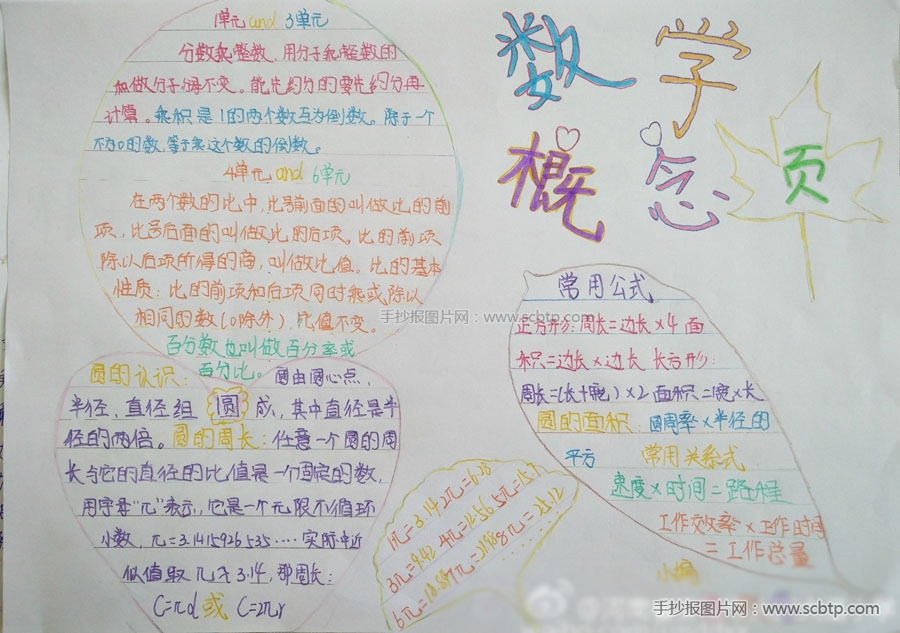 数学
概念页
1单元and 3单元
分数乘整数,用分子乘整数的
积做分子,分母不变。能先约分的要先约分再
计算。乘积是1的两个数互为倒数。除于一个
不为0的数,等于乘这个数的倒数。
4单元and 6单元
在两个数的比中,比号前面的叫做比的前
项,比号后面的叫做比的后项。比的前项
除以后项所得的商,叫做比值。比的基本
性质:比的前项和后项同时乘或除以
相同的数(0除外),比值不变。
百分数也叫做百分率或
百分比。
圆的认识:圆由圆心点、
半径、直径组 圆 成,其中直径是半
径的两倍。圆的周长:任意一个圆的周
长与它的直径的比值是一个固定的数,
用字母“π”表示,它是一个无限不循环
小数,π=3.1415926535……实际中近
似值取π≈3.14,那周长:
C=πd或 C=2πr
1π=3.14 2π=6.28
3π=9.42 4π=12.56 5π=15.7
6π=18.84 7π=21.98 8π=25.12
常用公式
正方形:周长=边长×4 面
积=边长×边长 长方形:
周长=(长+宽)×2 面积=宽×长
圆的面积:圆周率×半径的
平方 常用关系式
速度×时间=路程
工作效率×工作时间
=工作总量
手抄报图片网:www.scbtp.com
手抄报图片网:www.scbtp.com